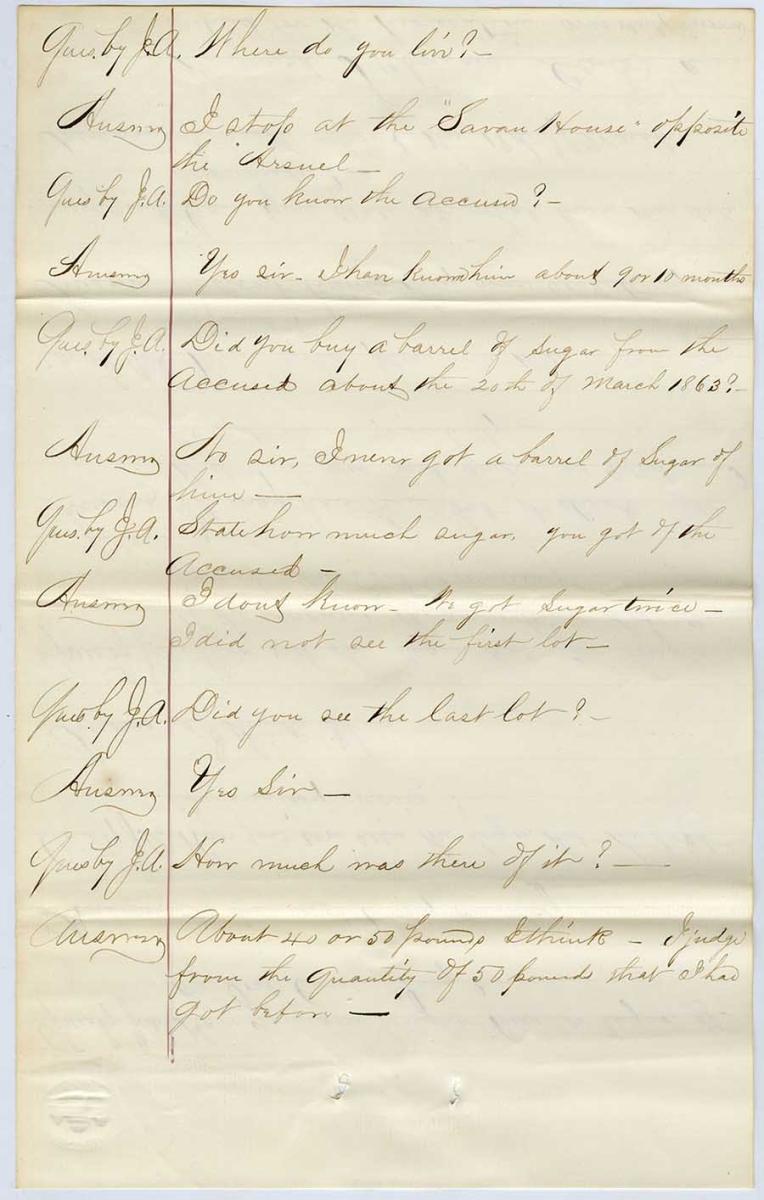 Ques. by J.A. Where do you live? –
Answer I stop at the "Savan House" opposite
the Arsnel –
Ques by J.A. Do you know the accused? –
Answer Yes sir – I have known him about 9 or 10 months
Ques. by J.A. Did you buy a barrel of sugar from the
Accused about the 20th of March 1863? –
Answer No sir, I never got a barrel of Sugar of
him —
Ques. by J.A. State how much sugar, you got of the
Accused –
Answer I dont know – We got Sugar twice –
I did not see the first lot –
Ques by J.A. Did you see the last lot? –
Answer Yes Sir –
Ques by J.A. How much was there of it? —
Answer About 40 or 50 pounds I think – I judge
from the quantity of 50 pounds that I had
got before —